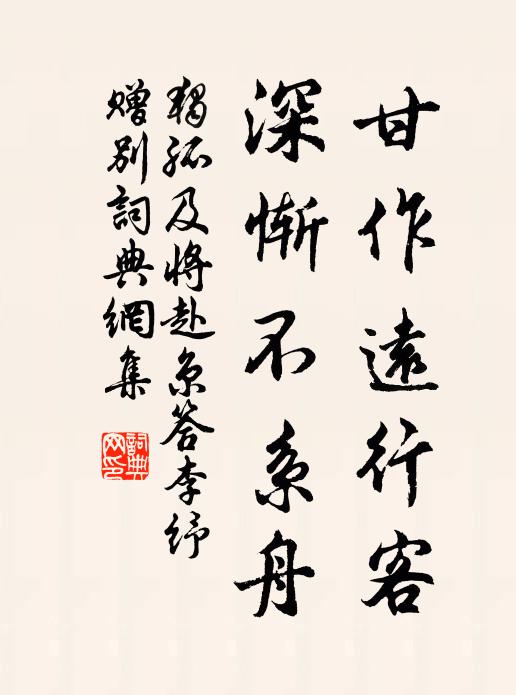 甘作遠行客
深慚不系舟
獨孤及將赴京答李紓
贈別詞典網集
詞典網印